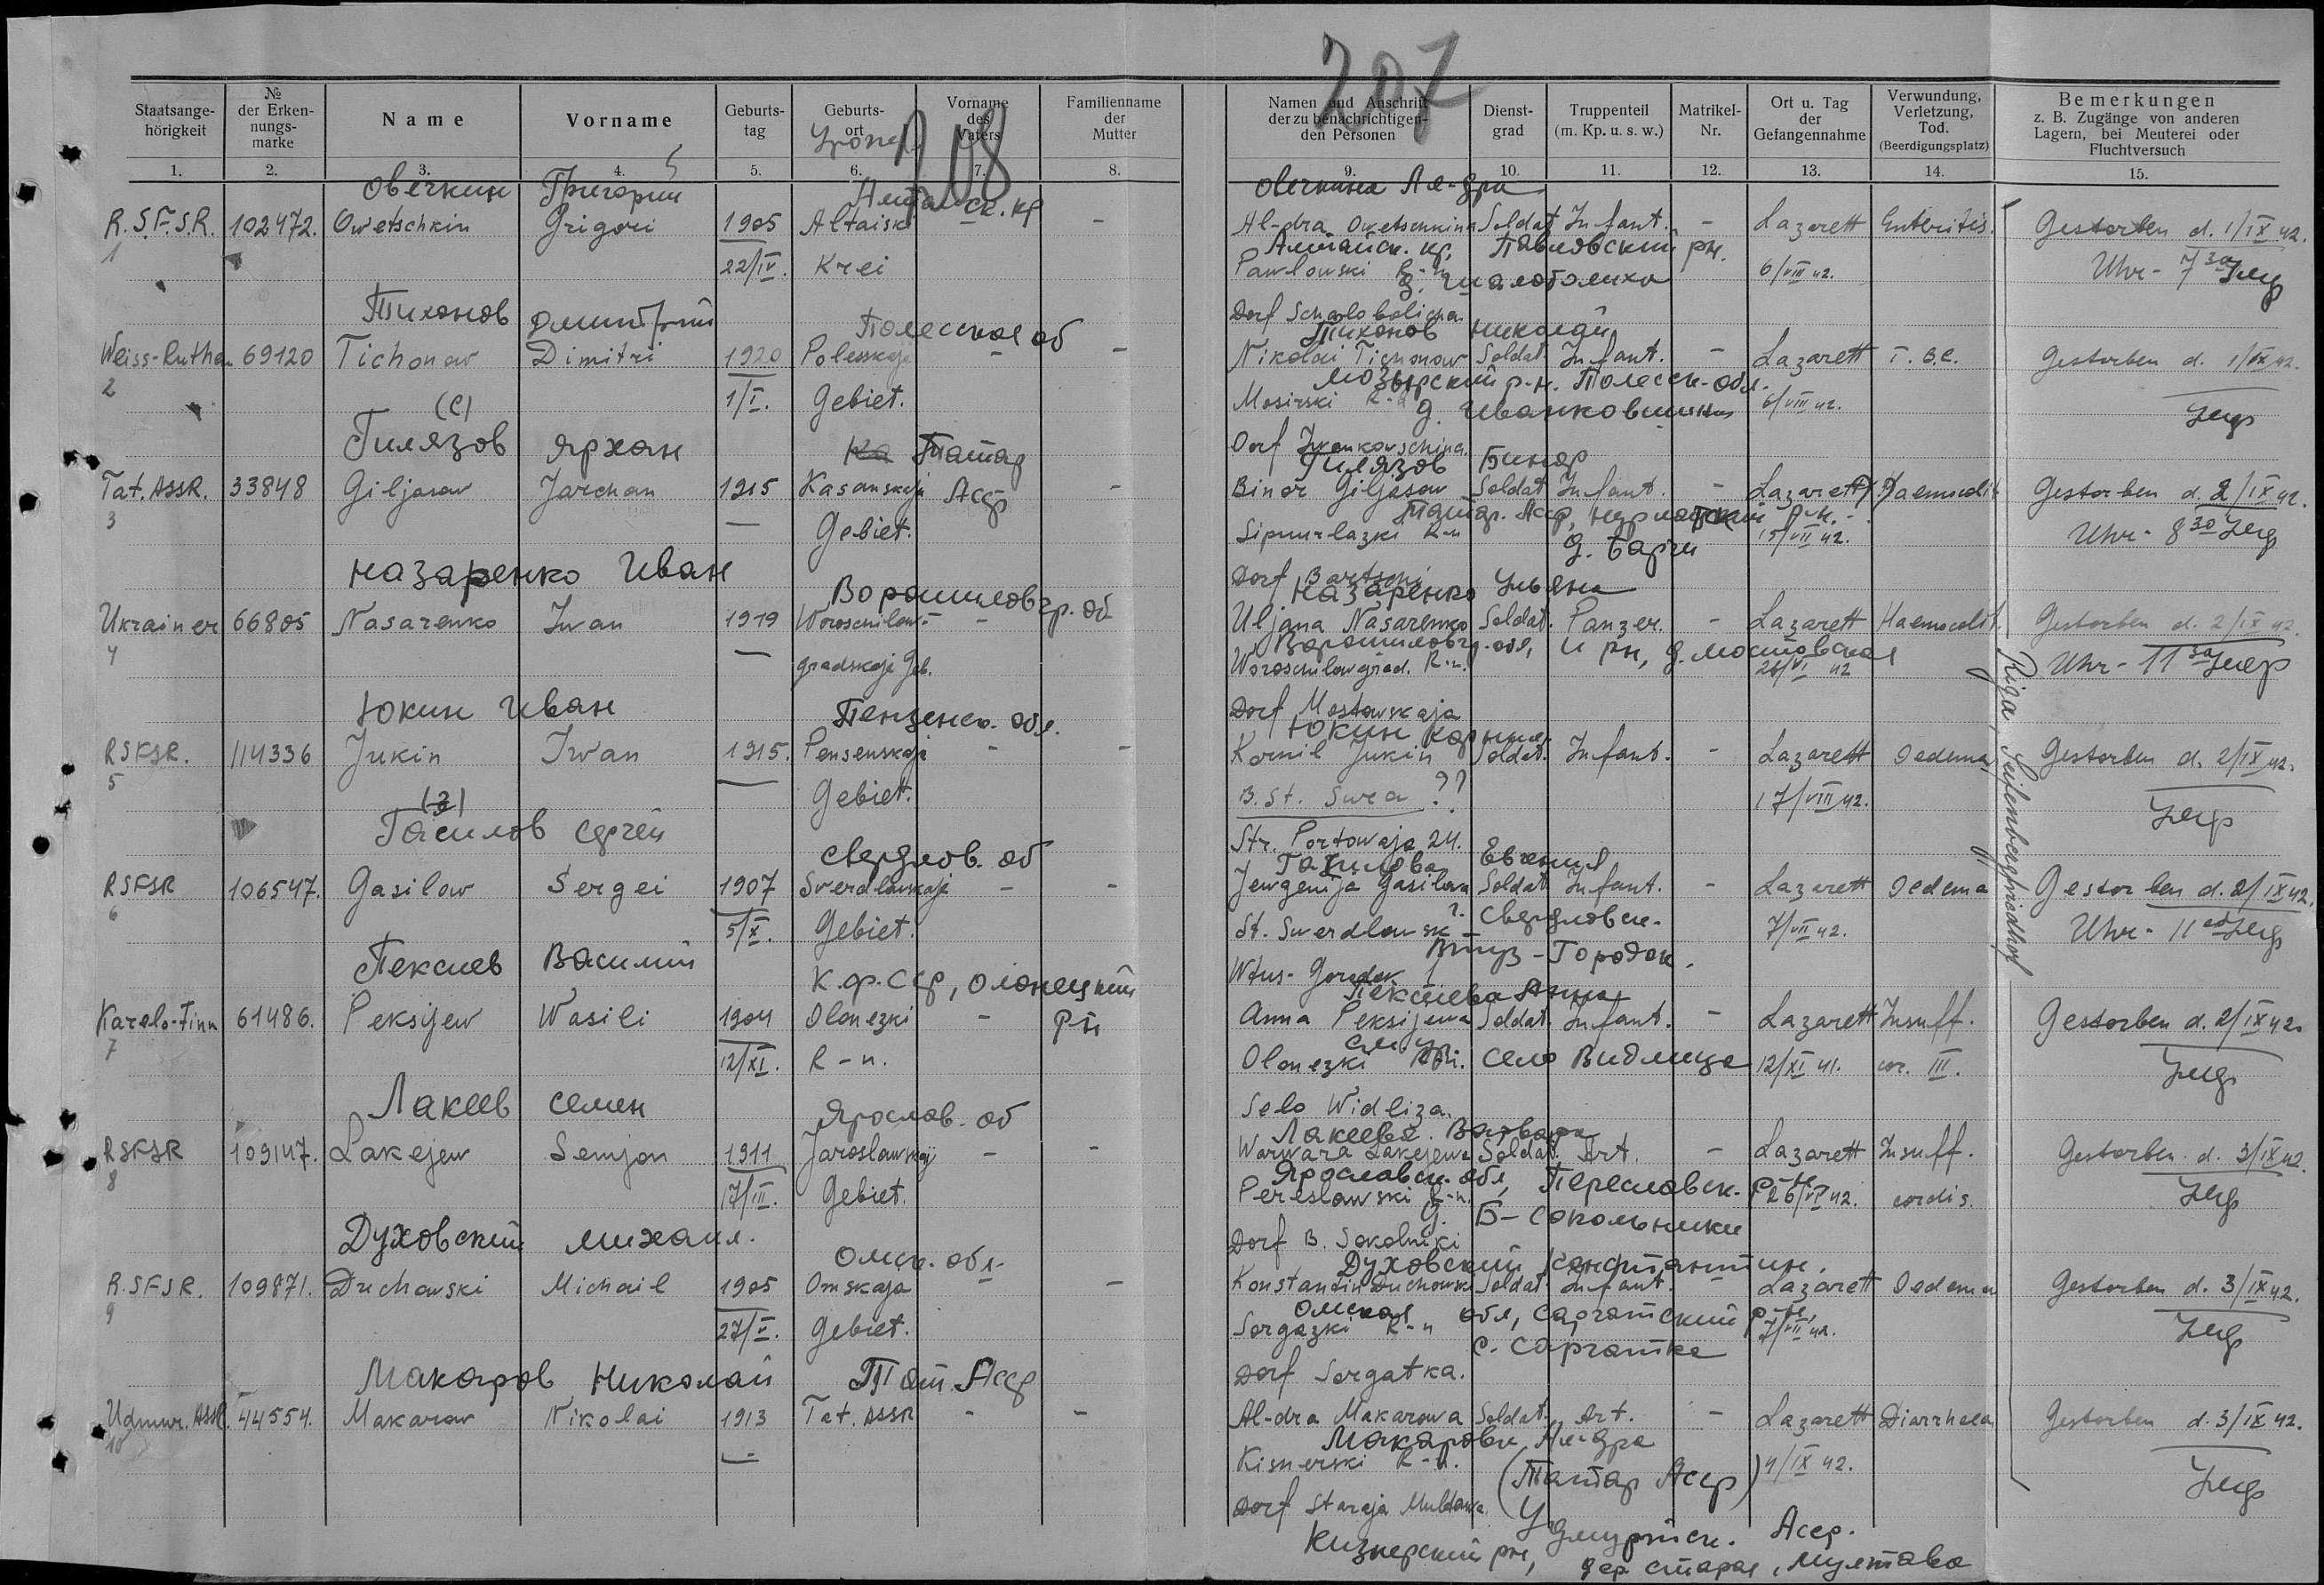 207
208
Staatsange-hörigkeit № der Erken-nungs-marke Name Vorname Geburts-tag Geburts-ort Vorname des Vaters Familienname der Mutter Namen und Anschrift der zu benachrichtigen-den Personen Dienst-grad Truppenteil (m. Kp. u. s. w.) Matrikel-Nr. Ort u. Tag der Gefangennahme Verwundung, Verletzung, Tod. (Beerdigungsplatz) Bemerkungen z. B. Zugänge von anderen Lagern, bei Meuterei oder Fluchtversuch
1. 2. 3. 4. 5. 6. 7. 8. 9. 10. 11. 12. 13. 14. 15.
Овечкин Григории ск. кр Овечкина Ал-дра
R.S.F.S.R. 102472. Owetschkin Grigori 1905 Altaiski - - Al-dra Owetschkina Soldat Infant. - Lazarett Enteritis. Gestorben d. 1/IX 42.
Алтайск. кр, Павловский рн.
1 22/IV. Krei Pawlowski R-n 6/VIII 42. Uhr - 7 30
д. Шалоболиха
Тихонов Дмитрий Полесская об Dorf Scholobolicha
Тихонов Николай
Weiss-Ruthen 69120 Tichonow Dimitri 1920 Polesskaja - - Nikolai Tichonow Soldat Infant. - Lazarett T.B.C. Gestorben d. 1/IX 42.
Мозырский р-н. Полесск-обл.
2 1/I. Gebiet. Mosirski R-n 6/VIII 42.
(е) д. Иванковщина
Гилязов Ярхан Ка Татар Dorf Iwankowschina
Гилязов Бинор
Tat. ASSR. 33848 Giljasow Jarchan 1915 Kasanskaja Асср - Binor Giljasow Soldat Infant. - Lazarett Gestorben d. 2/IX 42.
3 — Gebiet. R-n 15/VII 42. Uhr - 8 30
д. Барчи
Назаренко Иван Ворошиловгр. об Dorf Bartschi
Назаренко Ульяна
Ukrainer 66805 Nasarenko Iwan 1919 Woroschilow- - Uljana Nasarenko Soldat. Panzer. - Lazarett Haemocolit. Gestorben d. 2/IX 42.
Ворошиловгр. обл, и рн, д. Мостовская
4 — gradskaja Geb. Woroschilowgrad. R-n. 26/VI 42 Uhr - 11 30
Юкин Иван Пензенск. обл. Dorf Mostowskaja
Юкин Корнил
RSFSR. 114336 Jukin Iwan 1915. Pensenskaja - - Kornil Jukin Soldat. Infant. - Lazarett Oedema Gestorben d. 2/IX 42.
5 — Gebiet. B. St. Swea ?? 17/VIII 42.
(з)
Гасилов Сергей Свердлов. об Str. Portowaja 24.
Евгения
RSFSR 106547. Gasilow Sergei 1907 Swerdlowskaja - - Jewgenija Gasilowa Soldat Infant. - Lazarett Oedema Gestorben d. 2/IX 42.
г. Свердловск.
6 5/X. Gebiet. St. Swerdlowsk 7/VII 42. Uhr - 11
Втуз-Городок.
Пексиев Василий К.Ф.ССР, Олонецкий Wtus-Gorodok 1
Пексиева Анна
Karelo-Finn 61486. Peksijew Wasili 1904 Olonezki - рн Anna Peksijewa Soldat. Infant. - Lazarett Insuff. Gestorben d. 2/IX 42.
7 12/XI. R-n. Olonezki село Видлица 12/XI 41. cor. III.
Лакеев Семен Ярослав. об Selo Widliza.
Лакеева. Варвара
RSFSR 109147. Lakejew Semjon 1911 Jaroslawskaj - - Warwara Lakejewa Soldat. Art. - Lazarett Insuff. Gestorben d. 3/IX 42.
Ярославск. обл, Переславск. р-н
8 17/III. Gebiet. Pereslawski R-n. 26/VI 42. cordis.
д. Б-Сокольники
Духовский Михаил. Омск. обл. Dorf B. Sokolniki
Духовский Константин.
R.SFSR. 109871. Duchowski Michail 1905 Omskaja - Konstantin Duchowski Soldat. Infant. - Lazarett Oedema Gestorben d. 3/IX 42.
Омская обл, Саргатский р-н,
9 27/V. Gebiet. Sargazki R-n 7/VII 42.
с. Саргатка
Макаров Николай Тат. Асср Dorf Sargatka.
Udmur. ASSR. 44554. Makarow Nikolai 1913 Tat. ASSR - - Al-dra Makarowa Soldat. Art. - Lazarett Diarrhoea Gestorben d. 3/IX 42.
Макарова Ал-дра
10 — Kisnerski R-n. (Татар Асср) 4/IX 42.
Dorf Staraja Multawa
Удмуртск. Асср.
Кизнерский рн, дер Старая Мултава
Riga, Seifenbergfriedhof